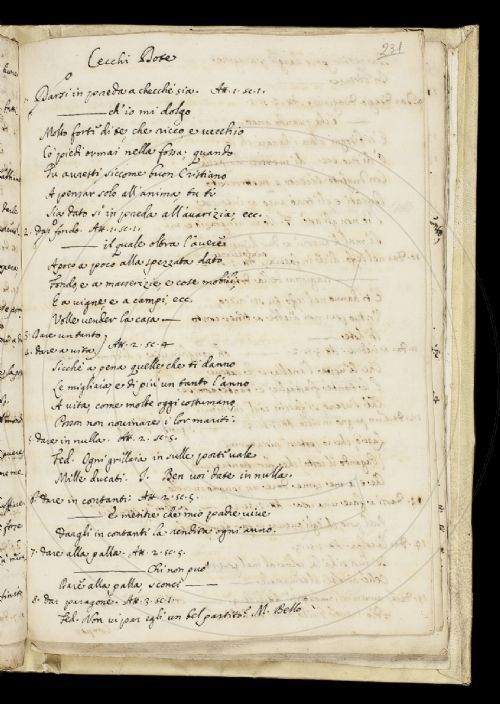 231
Cecchi Dote
1. Darsi in preda a checche sia. Att. 1. sc. 1.
ch'io mi dolgo
Molto forti di te che ricco e vecchio
Co' piedi ormai nella fossa, quando
Tu avresti siccome buon Cristiano
A pensar solo all'anima tu ti
Sia dato sì in preda all'avarizia, ecc.
2. dar fondo. Att. 1. sc. 1.
il quale oltra l'avere
A poco a poco alla spezzata dato
Fondo, e a masserizie e cose mobili,
E a vigne, e a campi, ecc.
Volle vender la casa
3. Dare un tanto
4. dare a vita Att. 2. sc. 4
Sicchè a pena quelle che ti danno
Le migliaia, e di più un tanto l'anno
A vita, come molte oggi costumano,
Posson non rovinare i lor mariti.
5. dare in nulla. Att. 2. sc. 5.
Fed. Ogni grillaia in sulle porti vale
Mille ducati. I. Ben voi date in nulla.
6. dare in contanti. Att. 2. sc. 5.
E mentre che mio padre vive
Dargli in contanti la rendita ogni anno.
7. dare alla palla. Att. 2. sc. 5.
Chi non può
Dare alla palla sconci
8. dar paragone. Att. 3. sc. 1.
Fed. Non vi par egli un bel partito? M. Bello